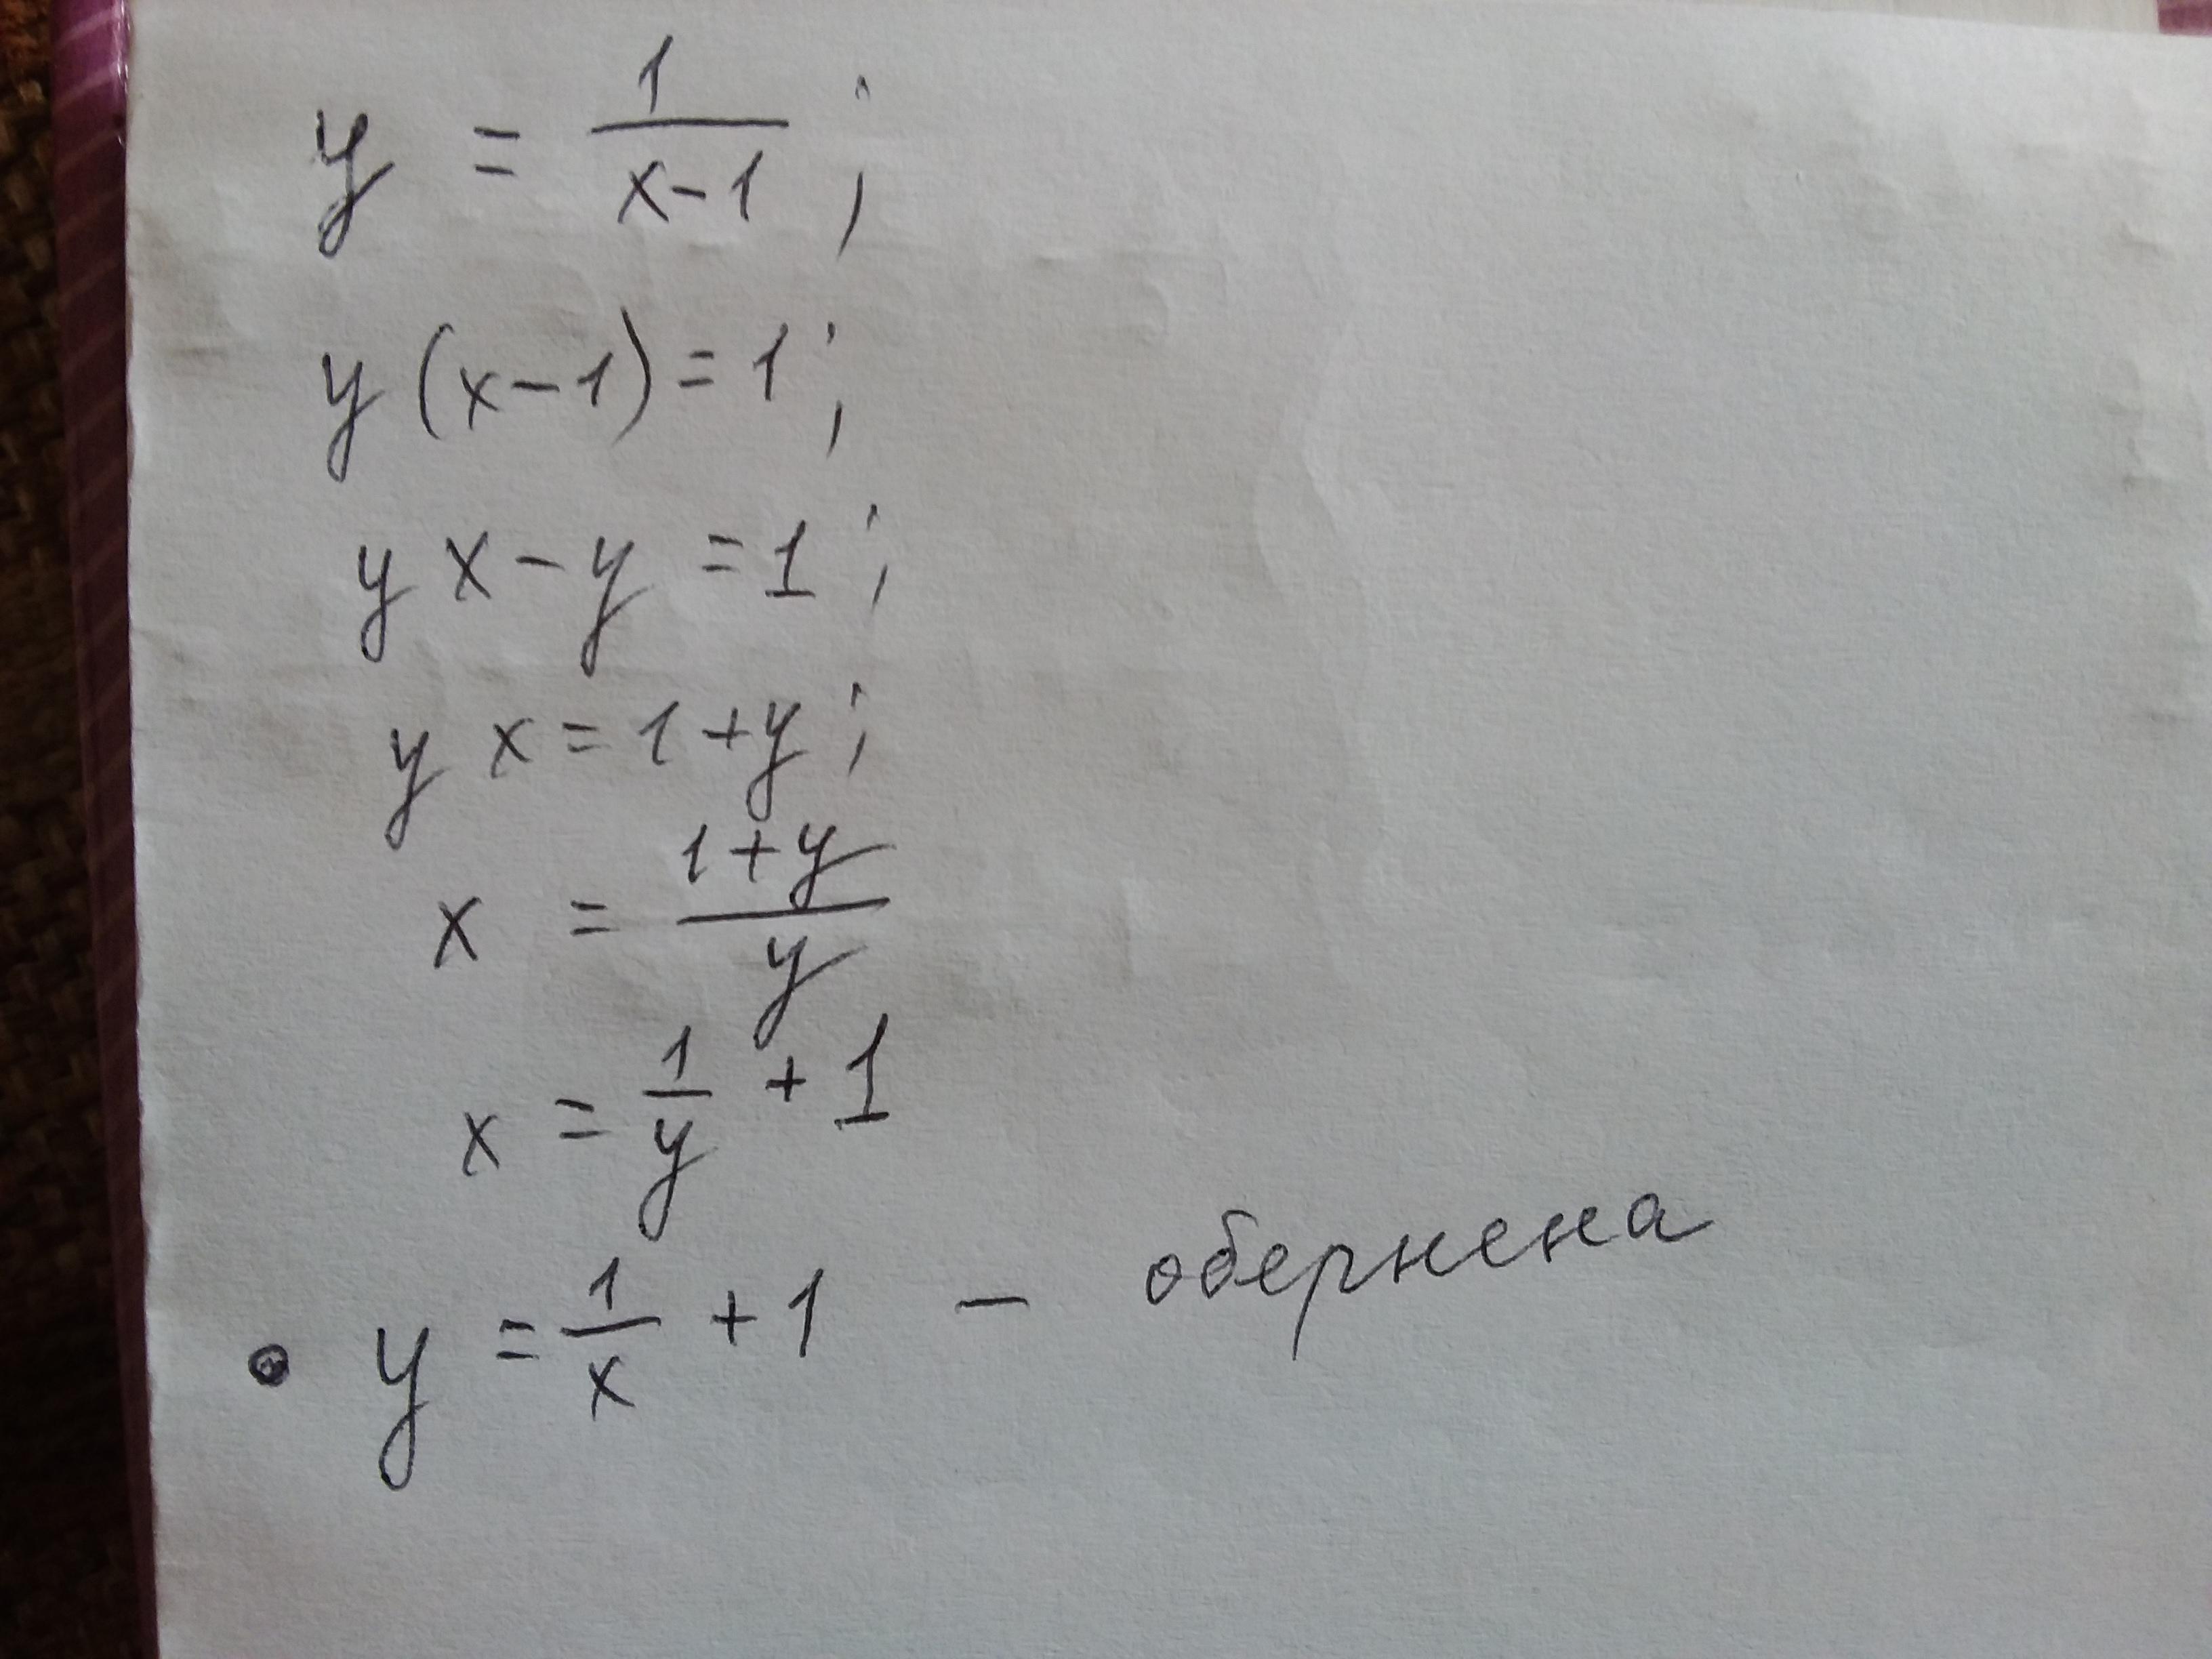 y = 1/(x-1) ;
y (x-1) = 1 ;
y x - y = 1 ;
y x = 1 + y ;
x = (1+y)/y
x = 1/y + 1
• y = 1/x + 1 - обернена